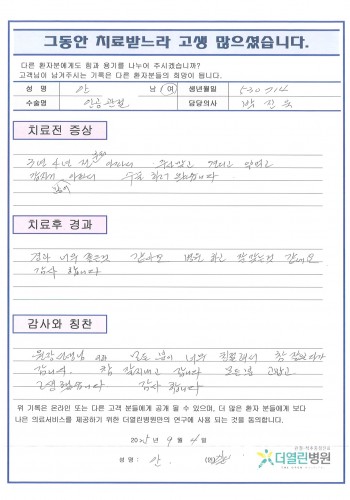 그동안 치료받느라 고생 많으셨습니다.
다른 환자분에게도 힘과 용기를 나누어 주시겠습니까?
고객님이 남겨주시는 기록은 다른 환자분들의 희망이 됩니다.
성 명 안 남 여 생년월일 530714
수술명 인공관절 담당의사 박진
치료전 증상
3년 4년 전 아파다
갑자기 아파다 수술 하기
치료후 경과
경과 너무 좋은것 같아요 병원 하고 잘 맞는것 같아요
감사 합니다
감사와 칭찬
원장선생님 너무 친절해서 참 잘있다가
갑니다. 참 잘지내고 갑니다 모든 고맙고
고생했습니다 감사 합니다
위 기록은 온라인 또는 다른 고객 분들에게 공개 될 수 있으며, 더 많은 환자 분들에게 보다
나은 의료서비스를 제공하기 위한 더열린병원만의 연구에 사용 되는 것을 동의합니다.
2025년 9월 4일
성 명 : 안. (인)
더열린병원